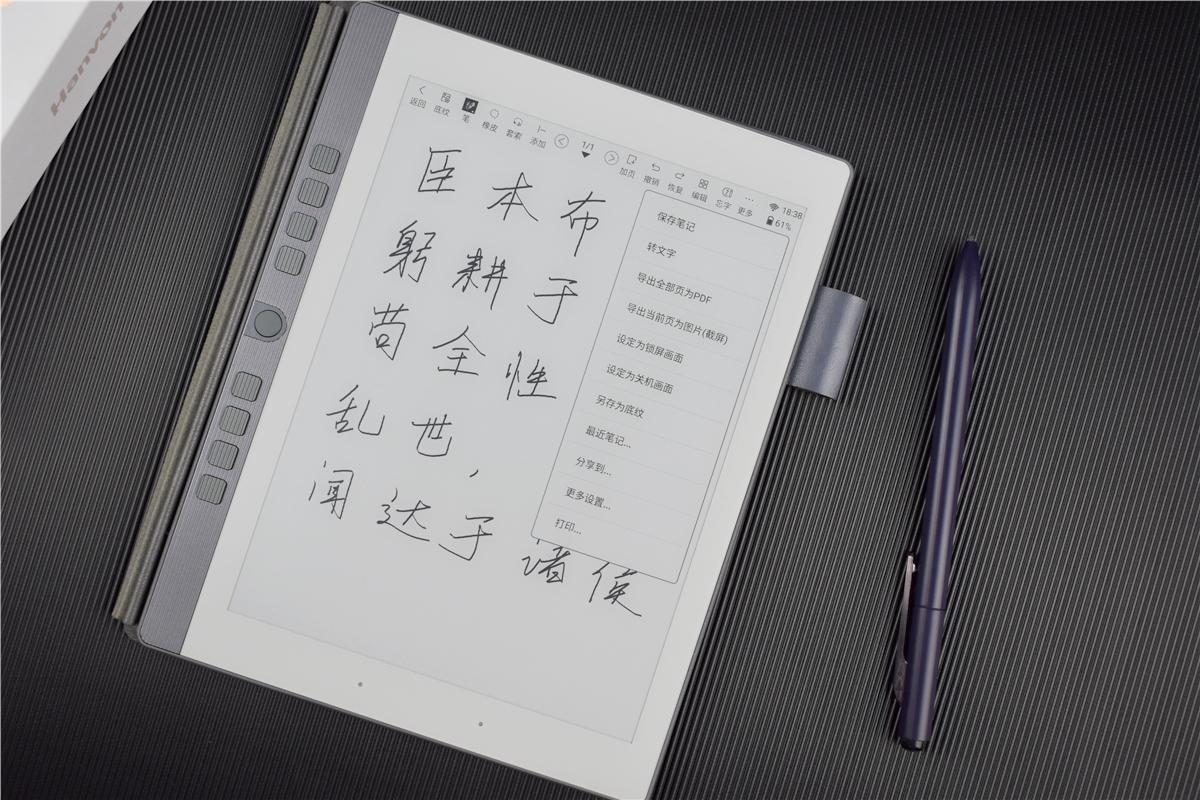 Hanvon
返回 底纹 笔 橡皮 套索 添加 1/1 加页 撤销 恢复 编辑 忘字 更多 18:38 61%
臣 本 布
躬 耕 于
苟 全 性
乱 世,
闻 达 于 诸 侯
保存笔记
转文字
导出全部页为PDF
导出当前页为图片(截屏)
设定为锁屏画面
设定为关机画面
另存为底纹
最近笔记...
分享到...
更多设置...
打印...